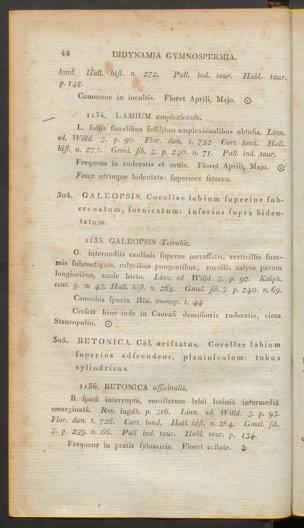 48 DIDYNAMIA GYMNOSPERMIA.
lond. Hall. hiſt. n. 272. Pall. ind. taur. Habl. taur.
p. 148.
Commune in incultis. Floret Aprili, Majo. ⊙
1134. LAMIUM amplexicaule.
L. foliis floralibus ſeſſilibus amplexicaulibus obtuſis. Linn.
ed. Willd. 3. p. 90. Flor. dan. t. 752. Curt. lond. Hall.
hiſt. n. 272. Gmel. ſib. 3. p. 240. n. 71. Pall. ind. taur.
Frequens in ruderatis et arvis. Floret Aprili, Majo. ⊙
Faux utrinque bidentata: ſuperiore ſetaceo.
304. GALEOPSIS. Corollae labium ſuperius ſub-
crenatum, fornicatum: inferius ſupra biden-
tatum.
1135. GALEOPSIS Tetrahit.
G. internodiis caulinis ſuperne incraſſatis, verticillis ſum-
mis ſubcontiguis, calycibus pungentibus, corollis calyce parum
longioribus, caule hirto. Linn. ed. Willd. 3. p. 92. Kniph.
cent. 8. n. 43. Hall. hiſt. n. 268. Gmel. ſib. 3. p. 240. n. 69.
Cannabis ſpuria. Riv. monop. t. 44
Creſcit hinc inde in Caucaſi demiſſioris ruderatis, circa
Stauropolin. ⊙
305. BETONICA. Cal. ariſtatus. Corollae labium
ſuperius adſcendens, planiuſculum: tubus
cylindricus.
1136. BETONICA officinalis.
B. ſpica interrupta, corollarum labii lacinia intermedia
emarginata. Roy. lugdb. p. 316. Linn. ed. Willd. 3. p. 93.
Flor. dan. t. 726. Curt. lond. Hall. hiſt. n. 264. Gmel. ſib.
3. p. 239. n. 66. Pall. ind. taur. Habl. taur. p. 134.
Frequens in pratis ſylvaticis. Floret aeſtate. ♃